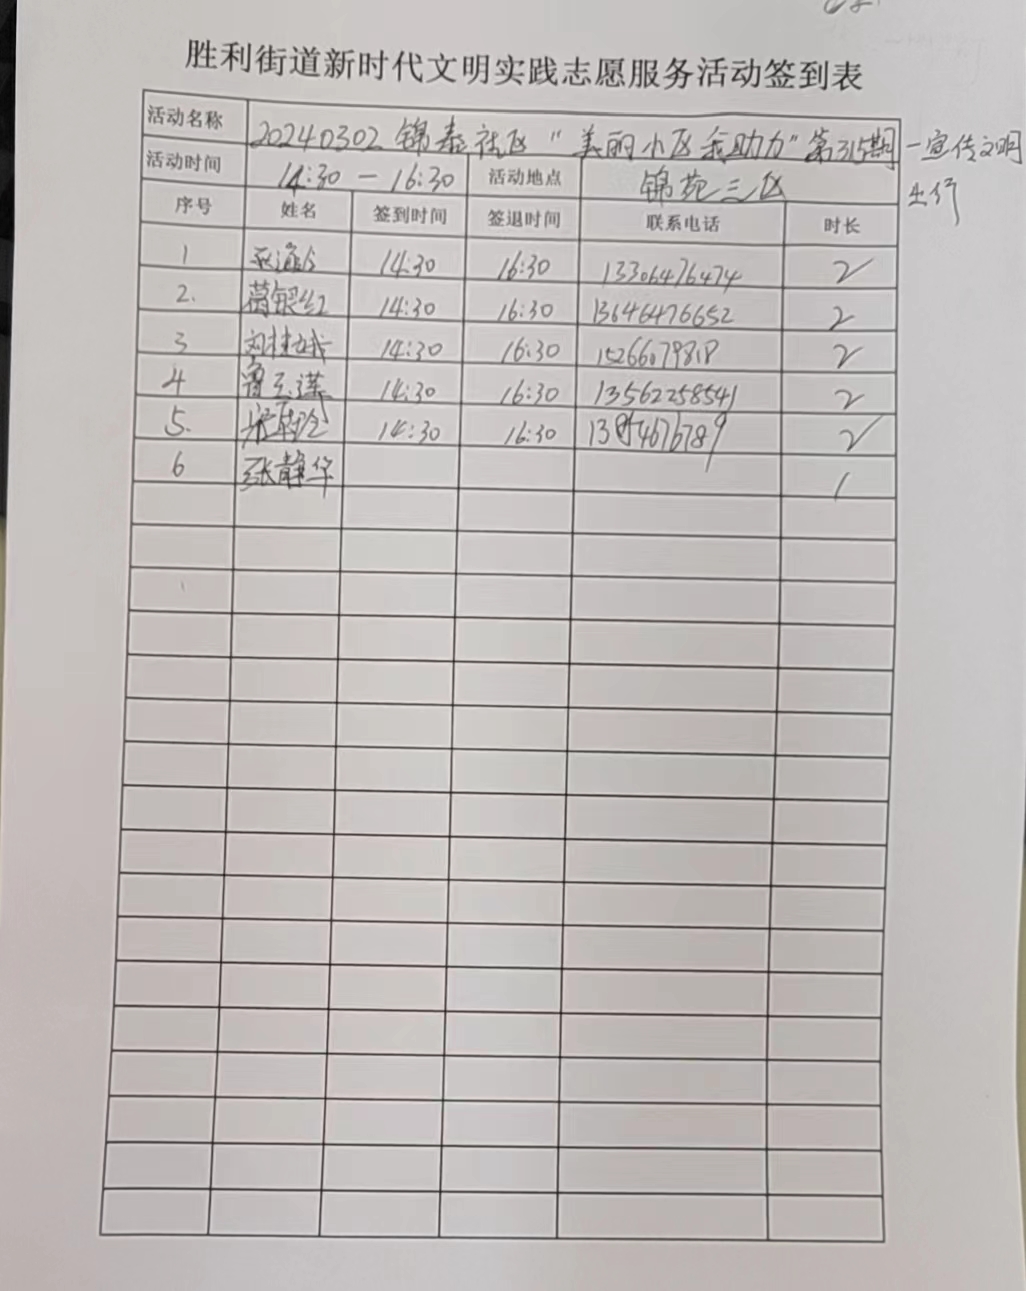 胜利街道新时代文明实践志愿服务活动签到表
活动名称 20240302锦泰社区"美丽小区我助力"第315期-宣传文明出行
活动时间 14:30-16:30 活动地点 锦苑三区
序号 姓名 签到时间 签退时间 联系电话 时长
1 14:30 16:30 13306476474 2
2. 葛银红 14:30 16:30 13646476652 2
3 刘桂娥 14:30 16:30 15266079818 2
4 鲁玉莲 14:30 16:30 13562258541 2
5. 14:30 16:30 2
6 张静华 1